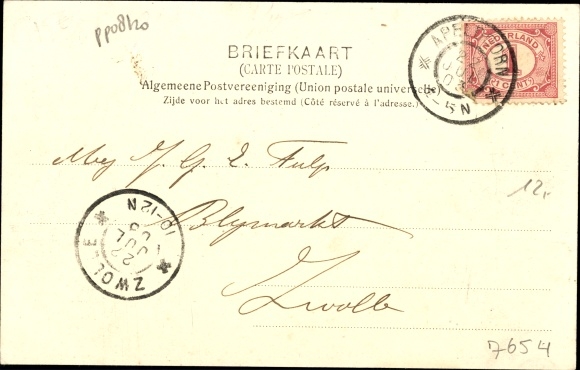 pp08120
BRIEFKAART
(CARTE POSTALE)
Algemeene Postvereeniging (Union postale universelle)
Zijde voor het adres bestemd (Côté réservé à l'adresse.)
APELDOORN
NEDERLAND
CENT
Mej J. G. L. Fulps
Blijmarkt
Zwolle
ZWOLLE
22 JUL 03
10-12N
12,-
7654